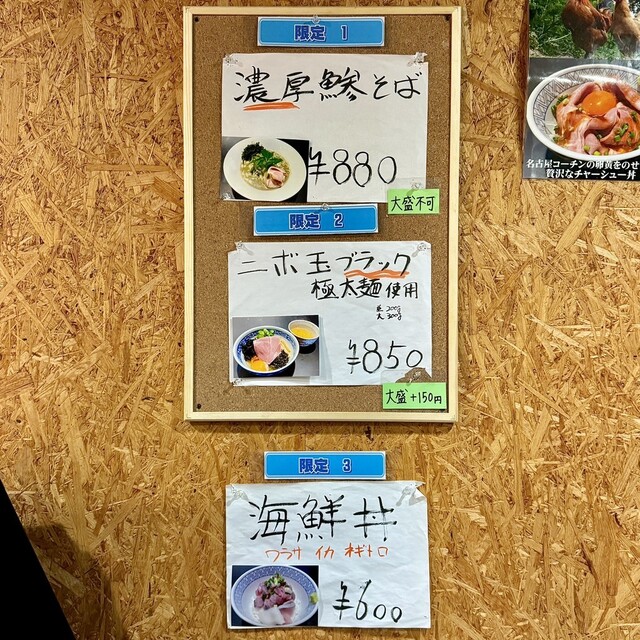 限定 1
濃厚鯵そば
¥880
大盛不可
限定 2
ニボ玉ブラック
極太麺使用
並 200g
大 300g
¥850
大盛 +150円
限定 3
海鮮丼
ワラサ イカ ネギトロ
¥600
名古屋コーチンの卵黄をのせ
贅沢なチャーシュー丼